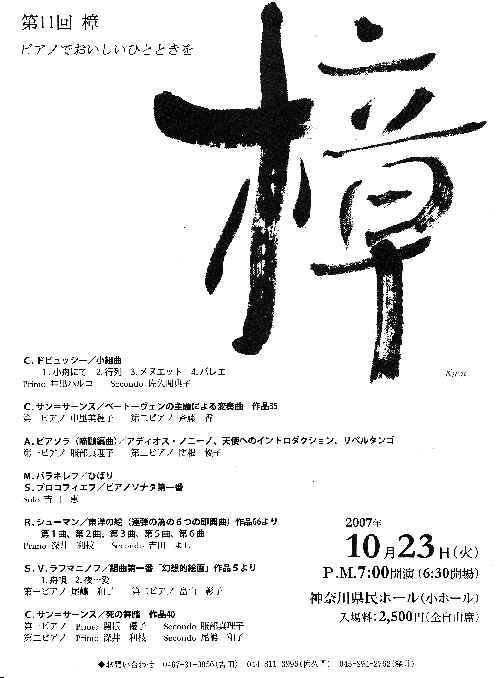 第11回 樟
ピアノでおいしいひとときを
樟
C.ドビュッシー／小組曲
1.小舟にて 2.行列 3.メヌエット 4.バレエ
Primo Secondo 佐久間典子
C.サン＝サーンス／ベートーヴェンの主題による変奏曲 作品35
第一ピアノ 中里美穂子 第二ピアノ 斉藤 香
A.ピアソラ／アディオス・ノニーノ、天使へのイントロダクション、リベルタンゴ
第一ピアノ 服部真理子 第二ピアノ
M.バラキレフ／ひばり
S.プロコフィエフ／ピアノソナタ第一番
Solo
R.シューマン／東洋の絵（連弾の為の6つの即興曲）作品66より
第1曲、第2曲、第3曲、第5曲、第6曲
Primo 深井 利枝 Secondo 吉田 よし
S.V.ラフマニノフ／組曲第一番「幻想的絵画」作品5より
1.舟唄 2.夜…愛
第一ピアノ 尾嶋 和子 第二ピアノ
C.サン＝サーンス／死の舞踏 作品40
第一ピアノ Primo Secondo 服部真理子
第二ピアノ Primo 深井 利枝 Secondo 尾嶋 和子
2007年
10月23日(火)
P.M.7:00開演(6:30開場)
神奈川県民ホール(小ホール)
入場料：2,500円(全自由席)
◆お問い合わせ